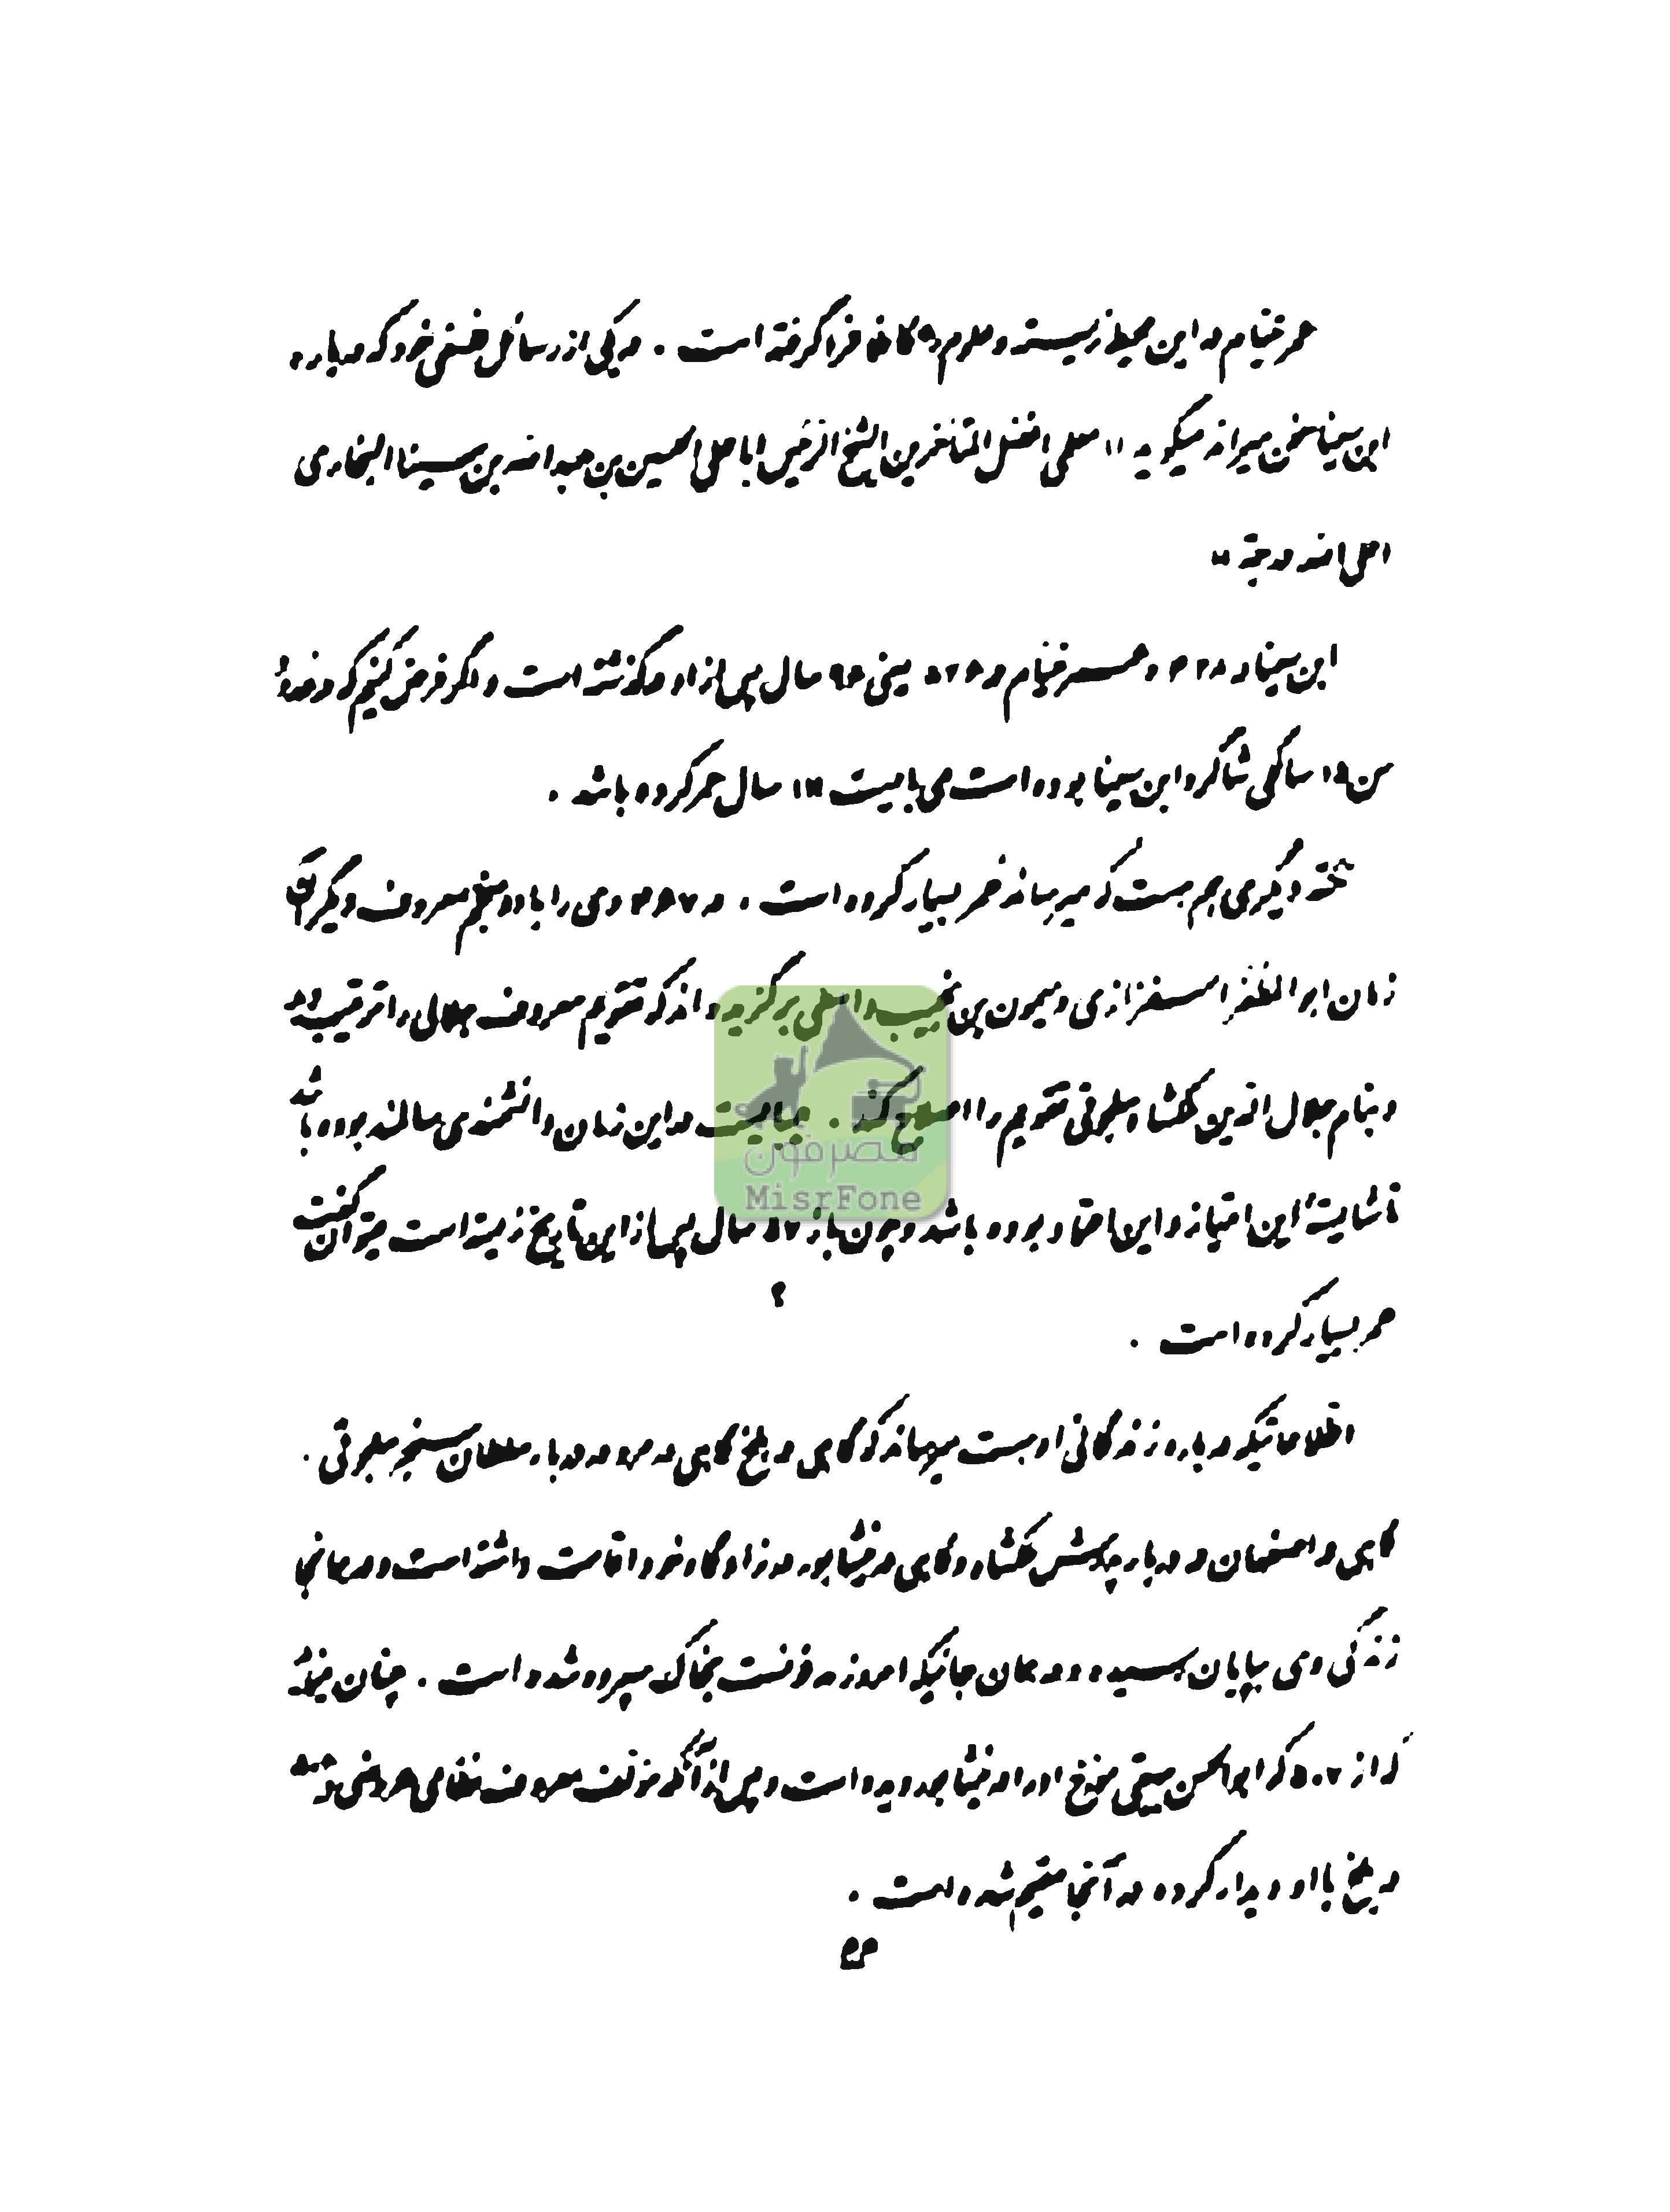 عمر خیام در این محیط زیسته و علوم را فرا گرفته است . در یکی از رسائل فلسفی خود که درباره
ابن سینا سخن میراند میگوید " معلمی افضل المتأخرین الشیخ الرئیس ابا علی الحسین بن عبدالله بن سینا البخاری
اعلی الله درجته "
ابن سینا در ۴۲۸ و عمر خیام در یعنی سال پس از او درگذشته است و اگر فرض کنیم که در
سن سالگی شاگرد ابن سینا بوده است می بایست سال عمر کرده باشد .
نکته دیگری هم هست که میرساند عمر بسیار کرده است . در ۴۶۷ وی را با دو منجم معروف دیگر آن
زمان ابوالمظفر اسفزازی و میمون بن نجیب واسطی برگزیده اند که تقویم معروف جلالی را ترتیب دهد
و بنام جلال الدین ملکشاه سلجوقی تقویم را اصلاح کند . میبایست در این زمان دانشمندی سالمند بوده باشد
تا شایستهٔ این امتیاز و این اعتماد بوده باشد و چون باز سال پس از این تاریخ زیسته است میتوان گفت
؟
عمر بسیار کرده است .
اطلاعاتیکه درباره زندگانی او هست میرساند که گاهی در بلخ گاهی در مرو در دربار سلطان سنجر سلجوقی .
گاهی در اصفهان در دربار پدرش ملکشاه و گاهی در نیشابور در زادگاه خود اقامت داشته است و در همانجا
زندگی وی بپایان رسیده و در همان جائیکه امروز مدفونست بخاک سپرده شده است . چنان مینماید
که از ۵۰۷ که ابوالحسن بیهقی مورخ او را در نیشابور دیده است و پس از آنکه مؤلف معروف نظامی عروضی
در بلخ با او دیدار کرده در آنجا مقیم شده است .